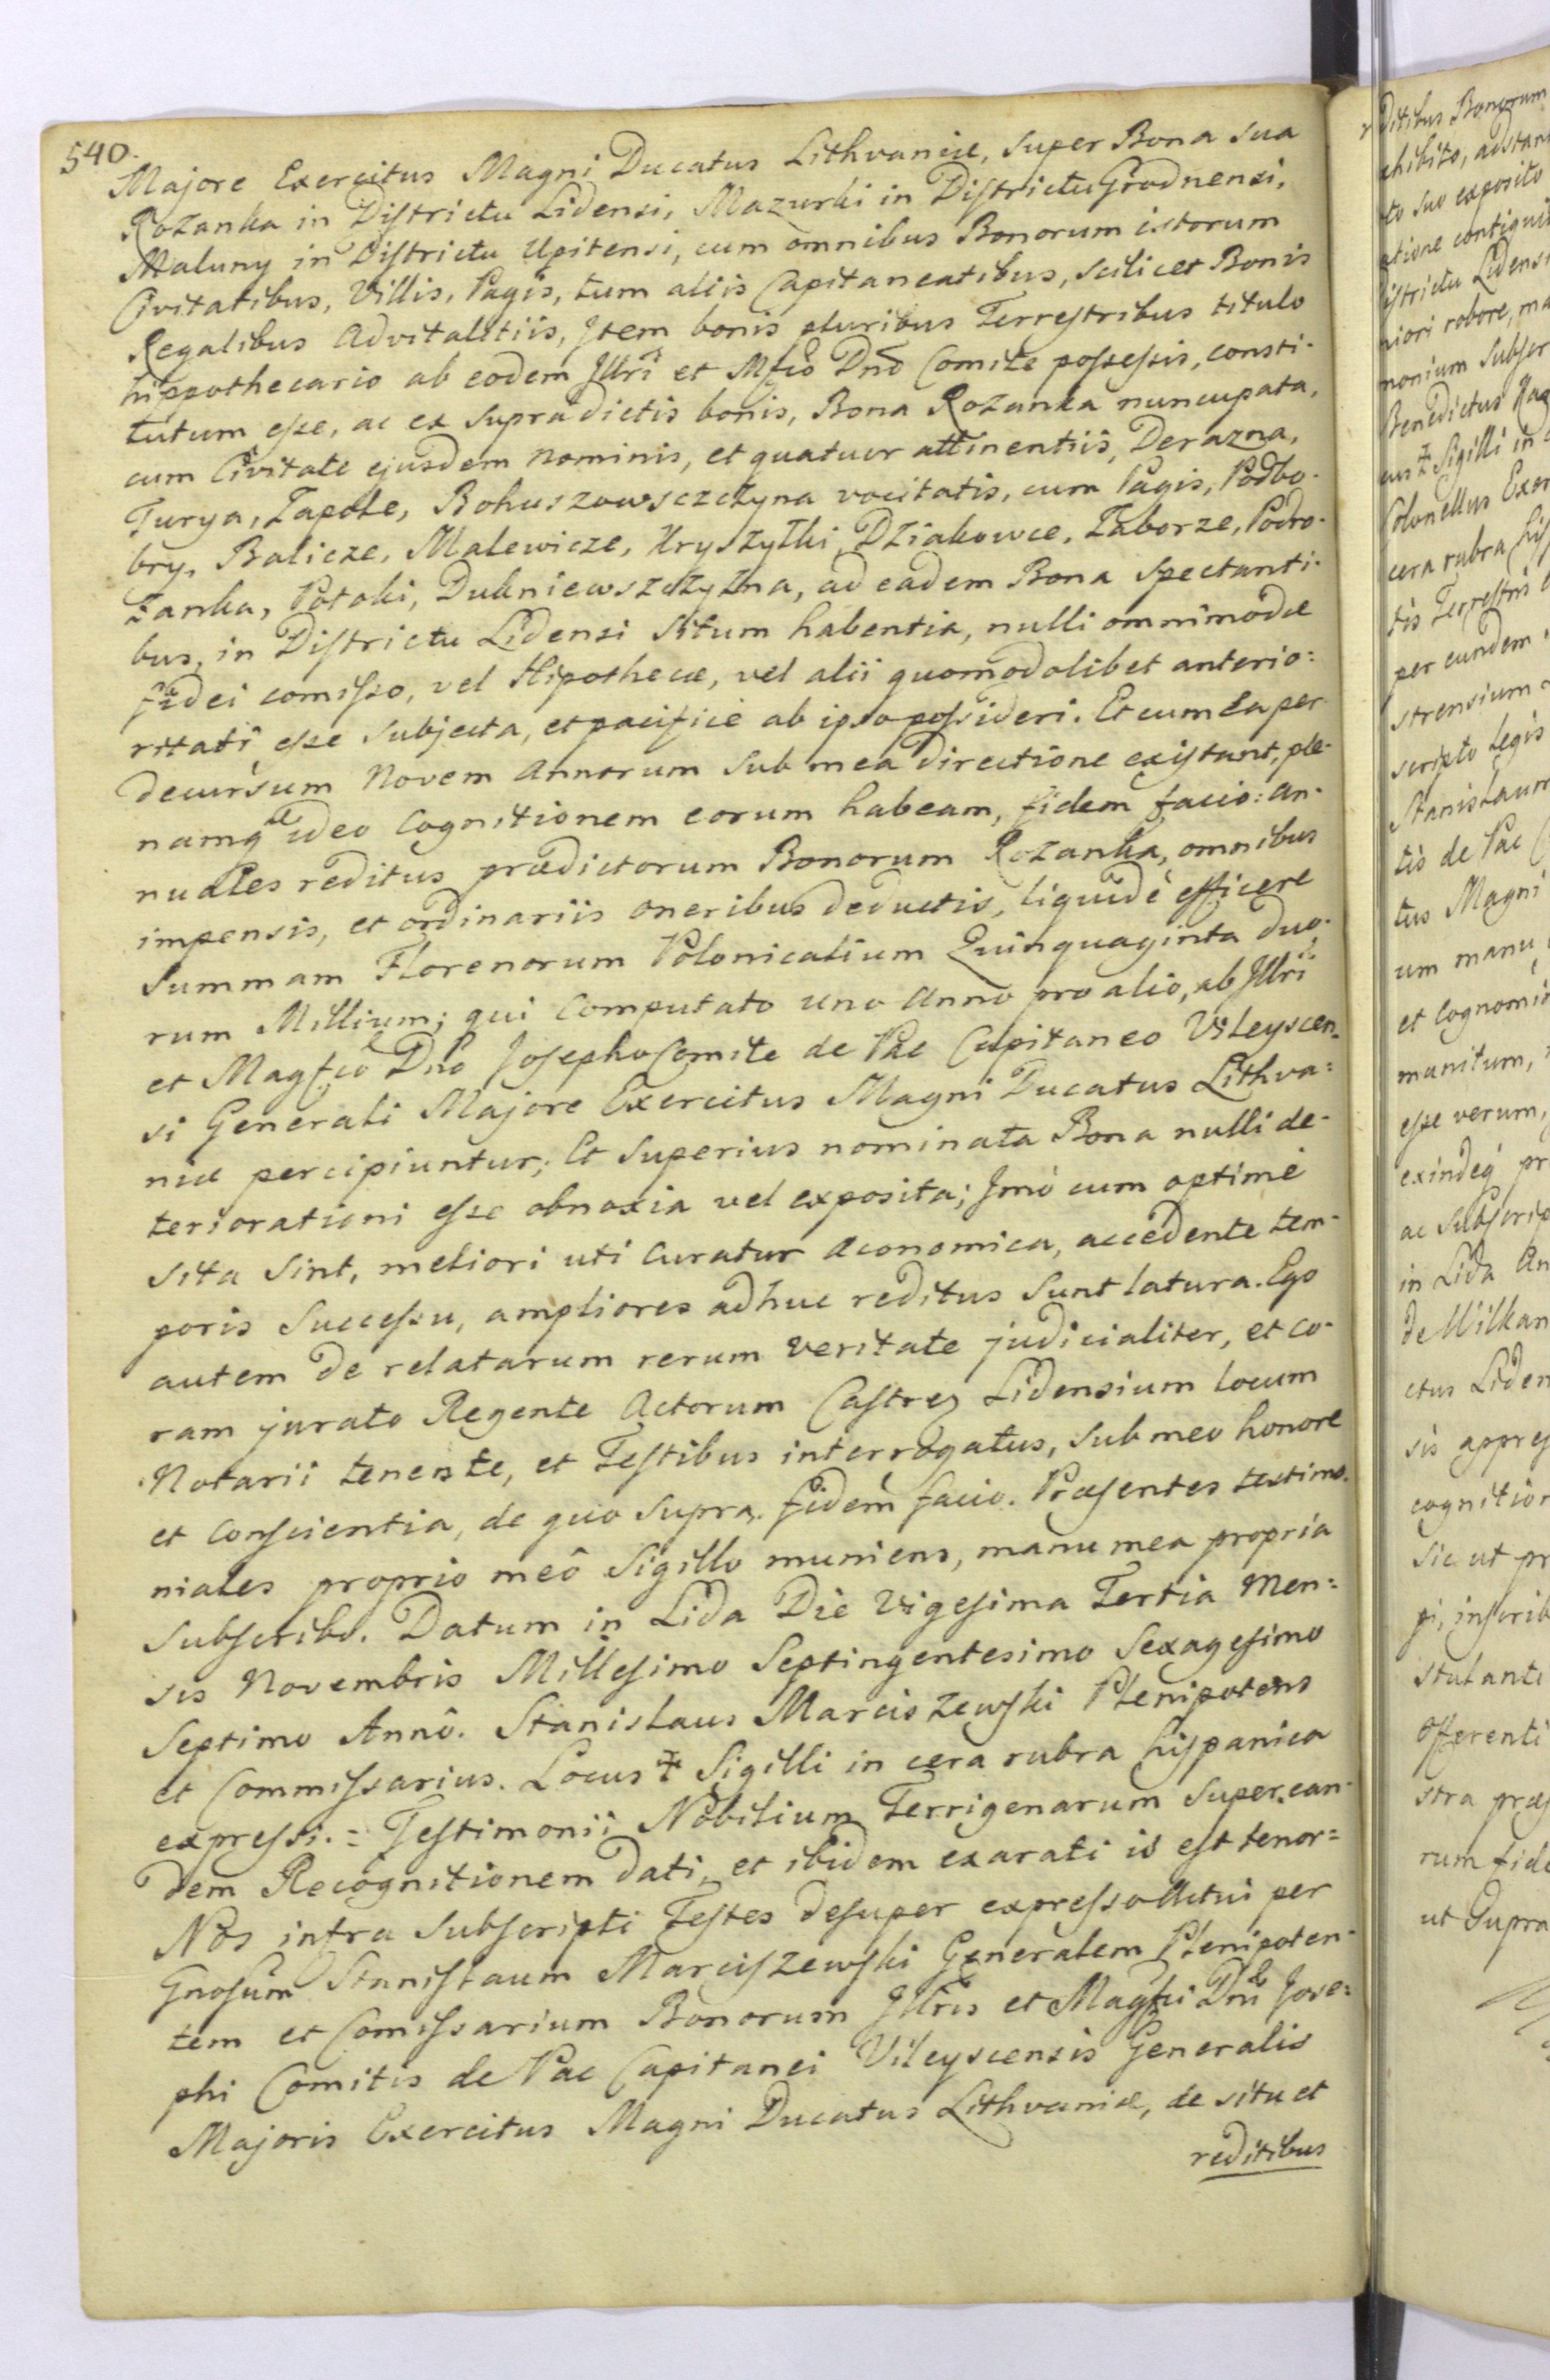 540.
Majore Exercitus Magni Ducatus Lithvaniæ, super Bona sua
Rozanka in Districtu Lidensi, Mazurki in Districtu Grodnensi,
Maluny in Districtu Upitensi, cum omnibus Bonorum istorum
Civitatibus, Villis, Pagis, tum aliis Capitaneatibus, scilicet Bonis
Regalibus Advitalitiis, Item bonis pluribus Terrestribus titulo
hippothecario ab eodem Illri et Mfco Dno Comite possessis, consti-
tutum esse, ac ex supradictis bonis, Bona Rozanka nuncupata,
cum Civitate ejusdem nominis, et quatuor attinentiis, Derazna,
Turya, Zapole, Bohuszowszczyna vocitatis, cum Pagis, Podbo-
bry, Balicze, Malewicze, Kryszyłki, Dziakowce, Zaborze, Podro-
zanka, Potoki, Dubniewszczyzna, ad eadem Bona spectanti-
bus, in Districtu Lidensi situm habentia, nulli omnimodæ
fidei comisso, vel Hipothecæ, vel alii quomodolibet anterio=
ritati esse subjecta, et pacifice ab ipso possideri. Et cum ea per
decursum Novem Annorum sub mea directione existant, ple-
namq ideo Cognitionem eorum habeam, fidem facio: an-
nuales reditus prædictorum Bonorum Rozanka, omnibus
impensis, et ordinariis oneribus deductis, liquidè efficere
Summam Florenorum Polonicalium Quinquaginta duo-
rum Millium; qui Computato uno Anno pro alio, ab Illri
et Magfco Dno Josepho Comite de Pac Capitaneo Vileyscen-
si Generali Majore Exercitus Magni Ducatus Lithva=
niæ percipiuntur; Et superius nominata Bona nulli de-
teriorationi esse obnoxia vel exposita; Imò cum optimè
sita sint, meliori uti Curatur Æconomica, accedente tem-
poris Successu, ampliores adhuc reditus sunt latura. Ego
autem de relatarum rerum veritate judicialiter, et co-
ram jurato Regente Actorum Castren Lidensium locum
Notarii tenente, et Testibus interrogatus, sub meo honore
et Conscientia, de quo supra fidem facio. Præsentes testimo-
niales proprio meô Sigillo muniens, manu mea propria
subscribo. Datum in Lida Die Vigesima Tertia Men=
sis Novembris Millesimo Septingentesimo Sexagesimo
Septimo Annô. Stanislaus Marciszewski Plenipotens
et Commissarius. Locus ‡ Sigilli in cera rubra hispanica
expressi. = Testimonii Nobilium Terrigenarum super ean-
dem Recognitionem dati, et ibidem exarati is est tenor=
Nos infra subscripti Testes desuper expresso Actui per
Gnosum Stanislaum Marciszewski Generalem Plenipoten-
tem et Comissarium Bonorum Illris et Magfci Dni Jose=
phi Comitis de Pac Capitanei Vileyscensis Generalis
Majoris Exercitus Magni Ducatus Lithvaniæ, de situ et
reditibus
ditibus Bonorum
chibito, adstan
to suo exposito
atione contigui
istrictu Lidensi
niori robore, ma
monium subscr
Benedictus
us ‡ Sigilli in
Colonellus Exer
cera rubra his
tis Terrestris
per eundem
strensium
scripto legis
Stanislaum
tis de Pac
tus Magni
um manu
et Cognomi
munitum,
esse verum,
exindeq pr
ac Subscrip
in Lida An
de Milkan
ctus Liden
sis appres
cognition
sic ut pr
pi, inscrib
stulanti
offerenti
stra præs
rum fide
ut Supra